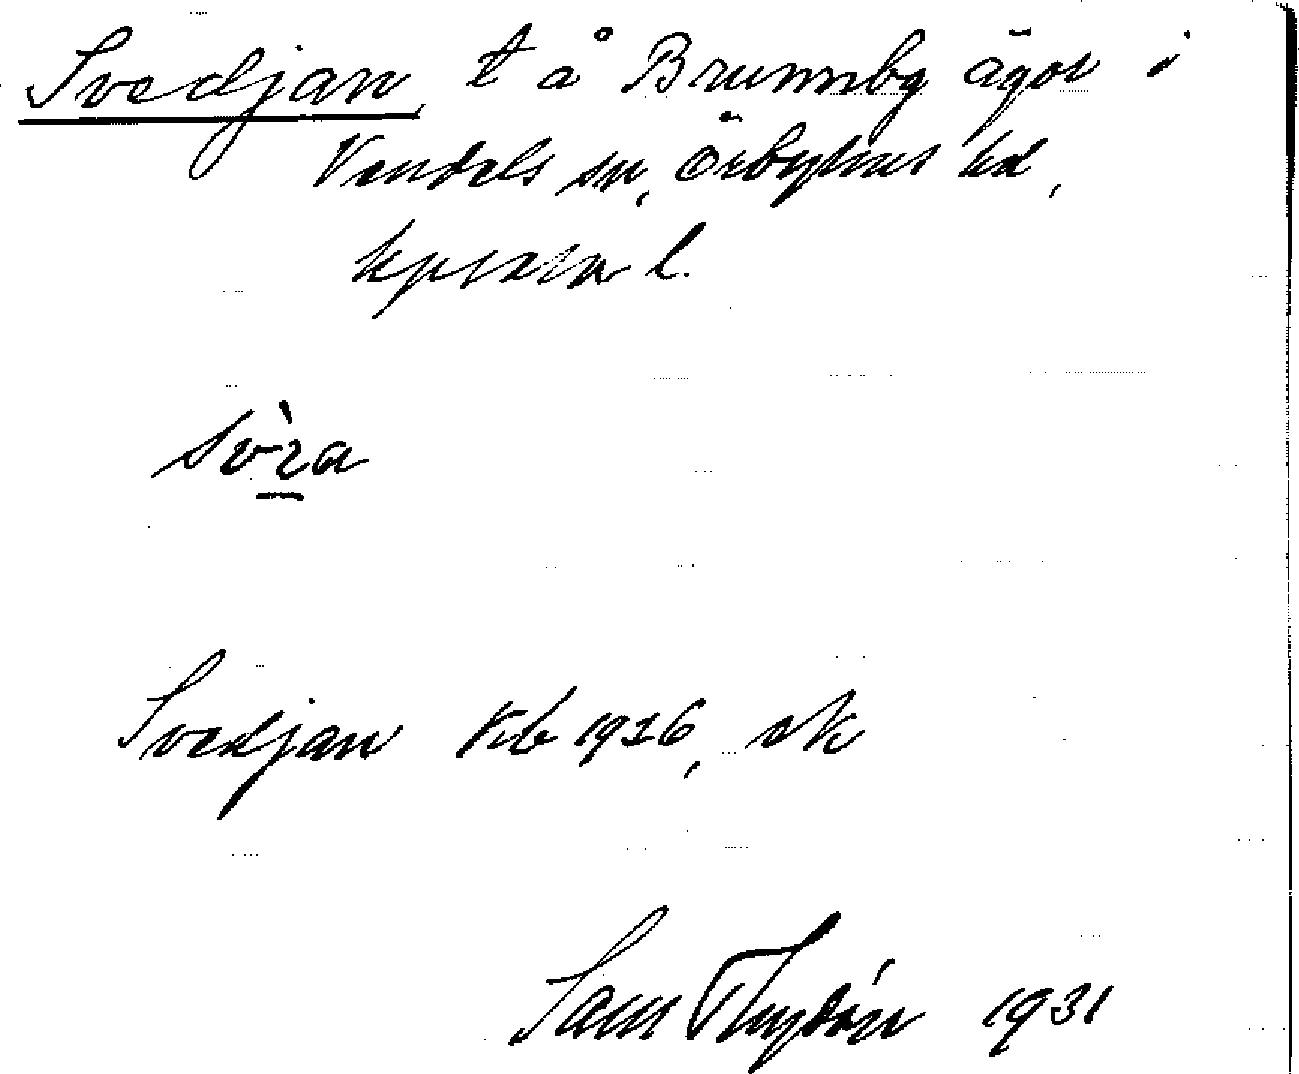 Svedjan, t å Brunnby ägor i
Vendels sn, Örbyhus hd,
Uppsala l.
Svedjan Kb 1926, ek
Sam Thydén 1931